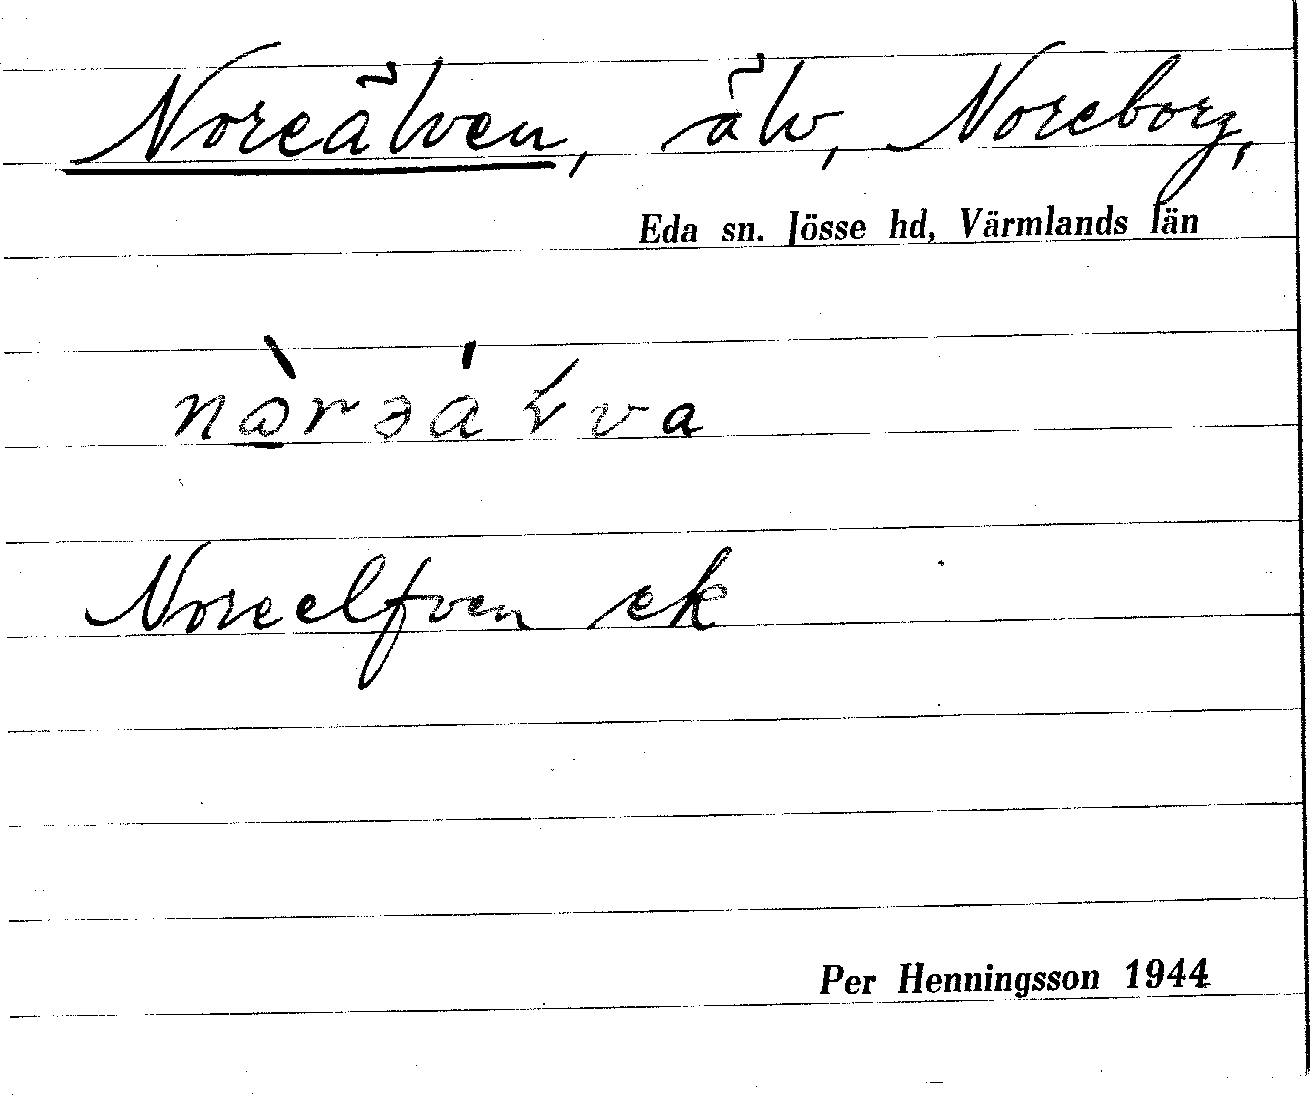 Noreälven, älv, Noreborg,
Eda sn. Jösse hd, Värmlands län
Noreelfven ek
Per Henningsson 1944